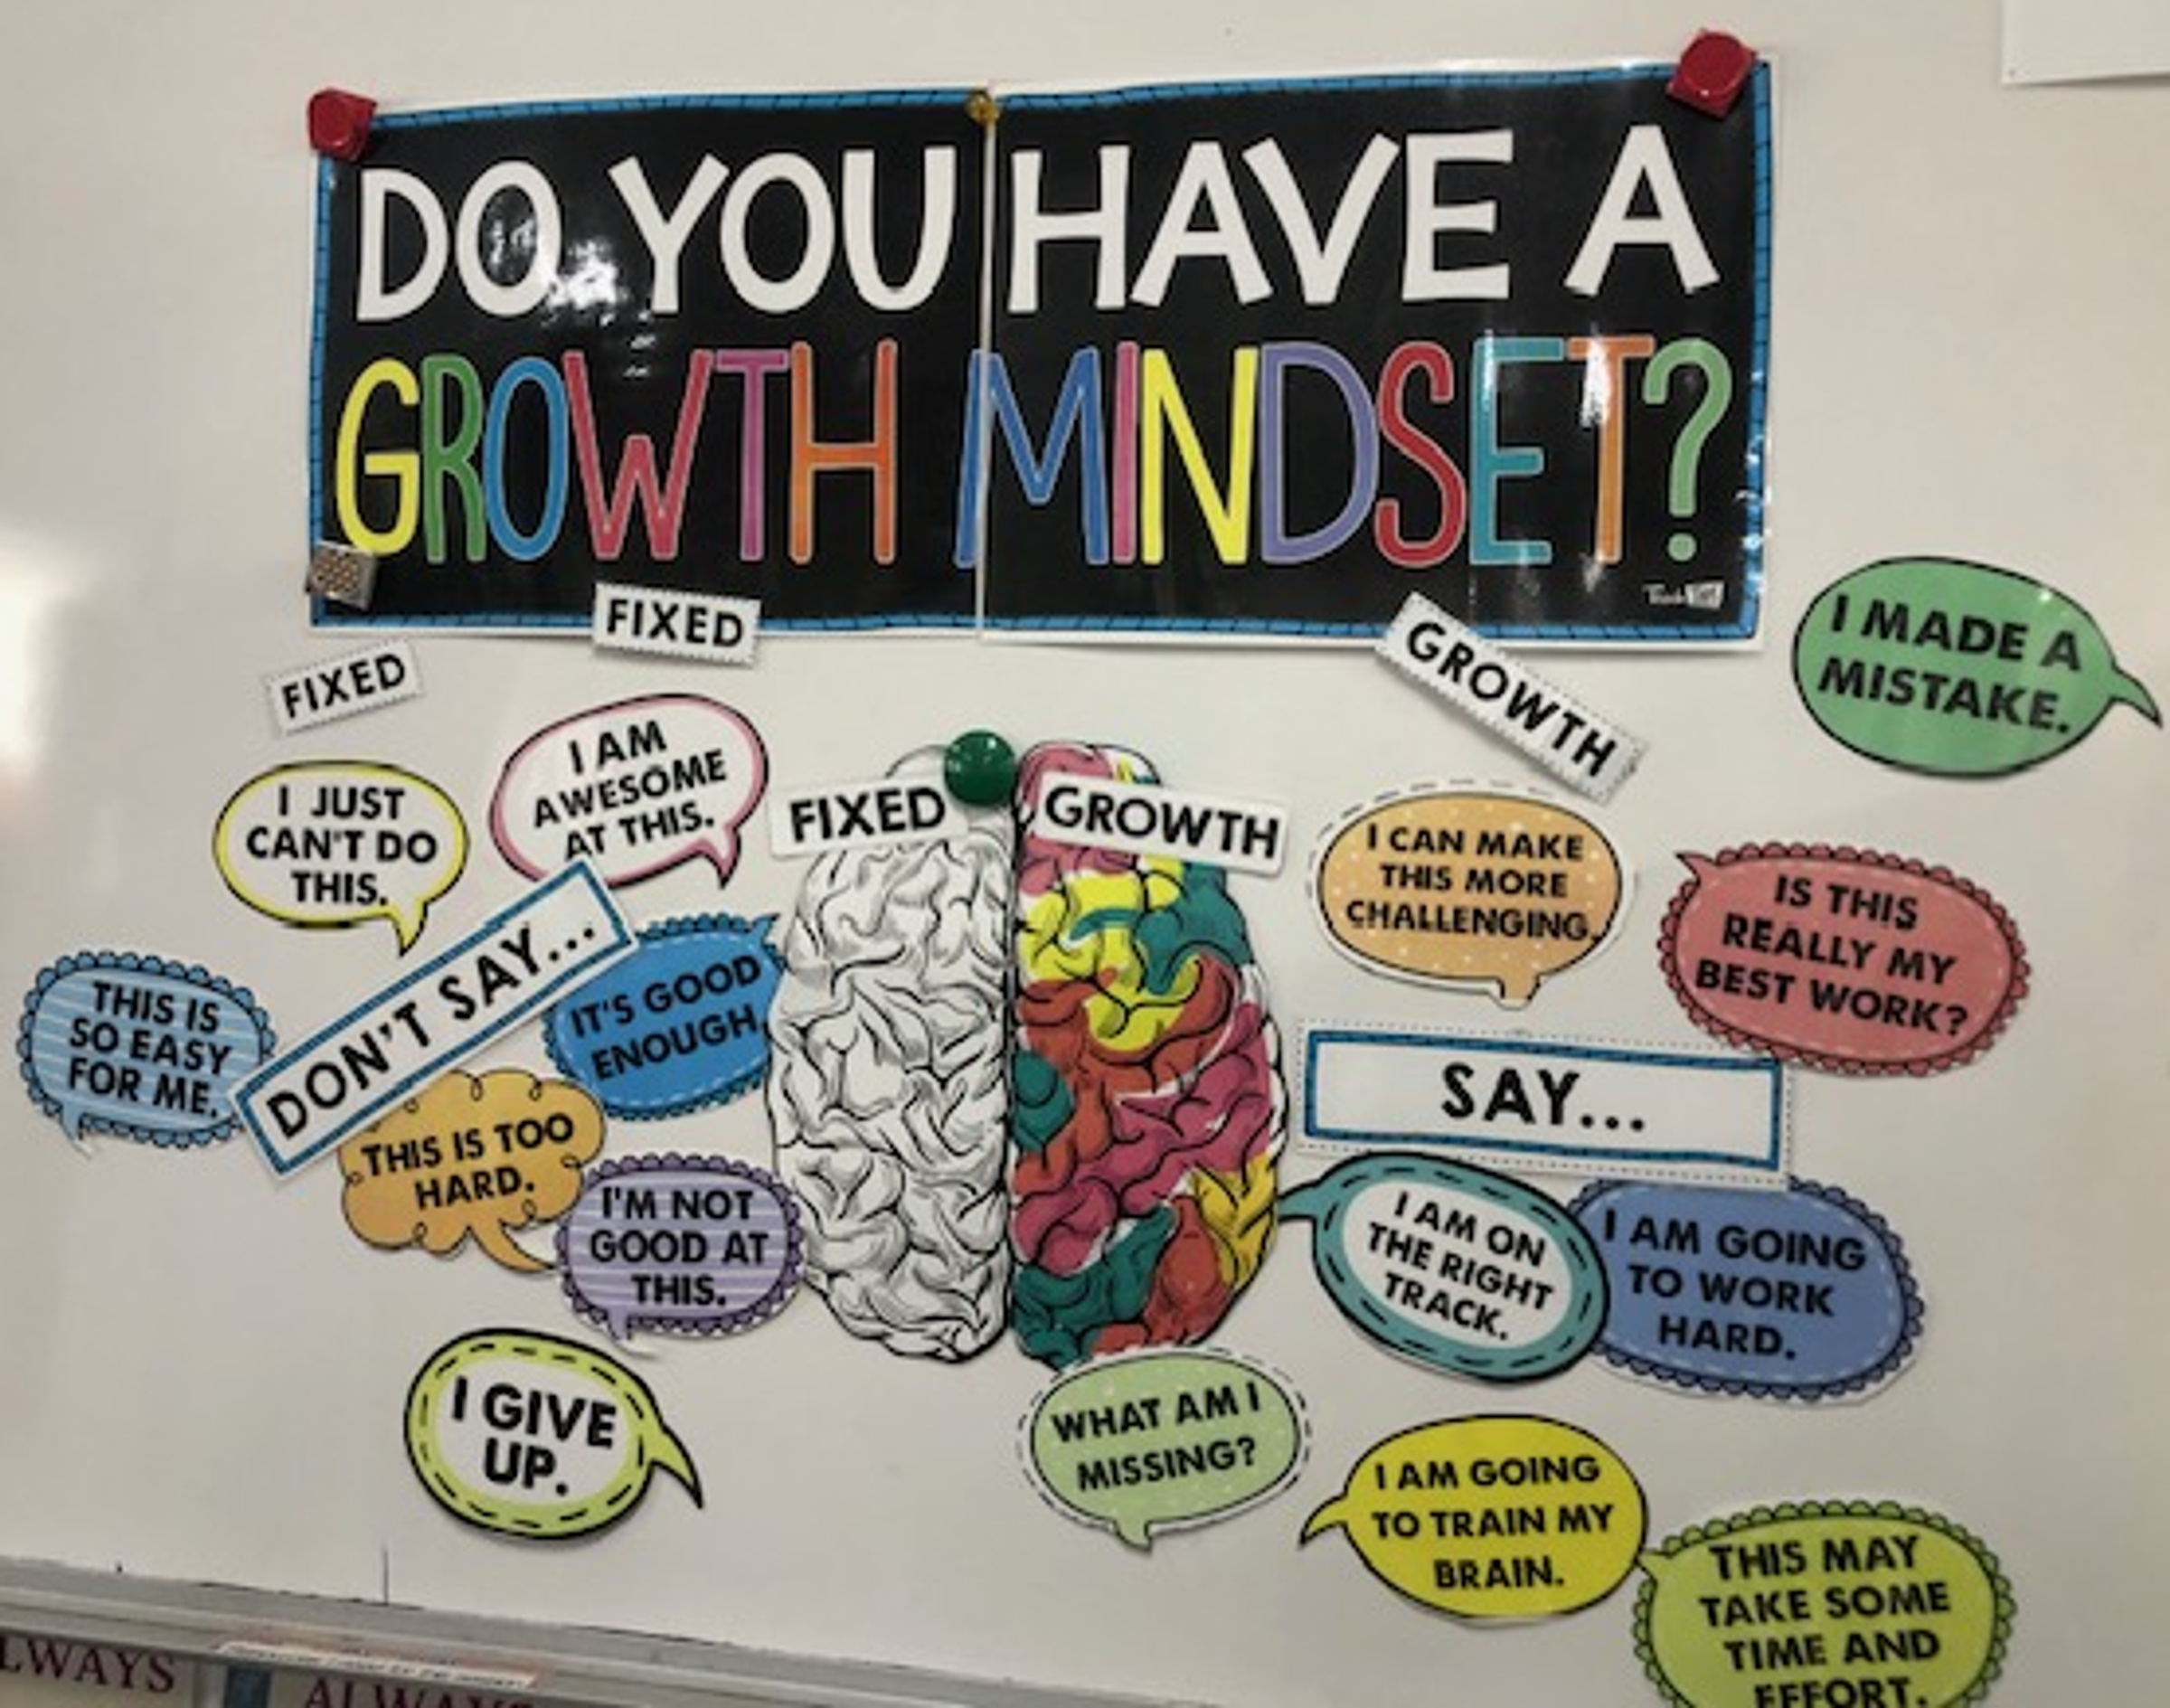 DO YOU HAVE A
GROWTH MINDSET?
FIXED
FIXED
GROWTH
I MADE A
MISTAKE.
I JUST
CAN'T DO
THIS.
I AM
AWESOME
AT THIS.
FIXED
GROWTH
I CAN MAKE
THIS MORE
CHALLENGING.
IS THIS
REALLY MY
BEST WORK?
THIS IS
SO EASY
FOR ME.
DON'T SAY...
IT'S GOOD
ENOUGH.
SAY...
THIS IS TOO
HARD.
I'M NOT
GOOD AT
THIS.
I AM ON
THE RIGHT
TRACK.
I AM GOING
TO WORK
HARD.
I GIVE
UP.
WHAT AM I
MISSING?
I AM GOING
TO TRAIN MY
BRAIN.
THIS MAY
TAKE SOME
TIME AND
EFFORT.
ALWAYS